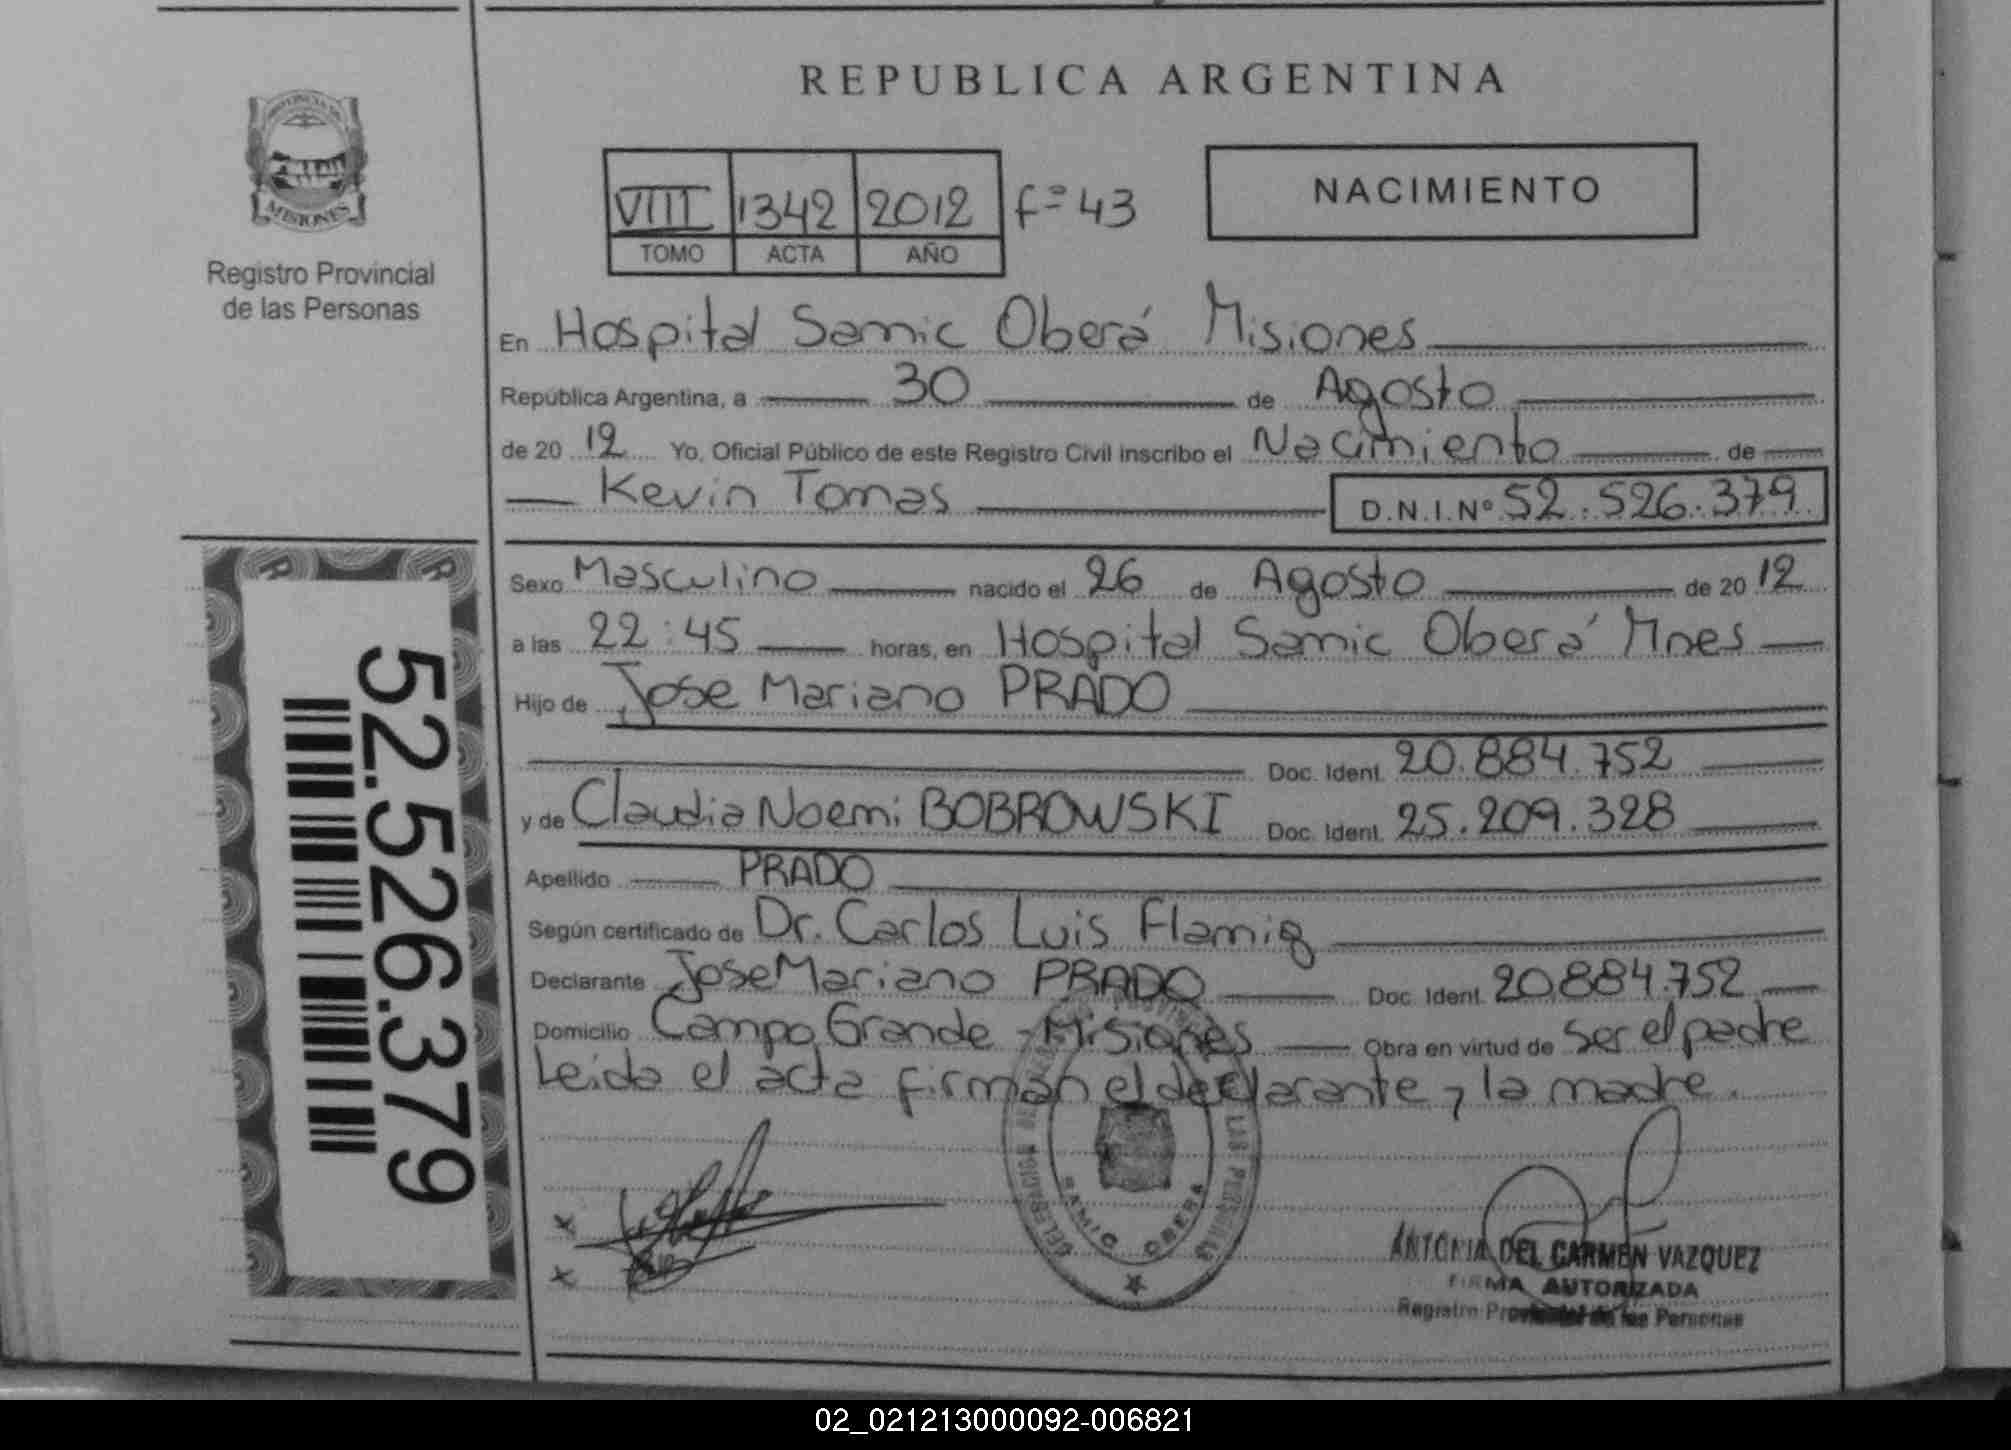 REPUBLICA ARGENTINA
PROVINCIA DE
MISIONES
Registro Provincial
de las Personas
VIII 1342 2012 fº 43
TOMO ACTA AÑO
NACIMIENTO
En Hospital Samic Oberá Misiones
República Argentina, a 30 de Agosto
de 2012 Yo, Oficial Público de este Registro Civil inscribo el Nacimiento de
Kevin Tomas D.N.I.Nº 52.526.379
Sexo Masculino nacido el 26 de Agosto de 2012
a las 22:45 horas, en Hospital Samic Oberá Mnes
Hijo de Jose Mariano PRADO
Doc. Ident. 20.884.752
y de Claudia Noemi BOBROWSKI Doc. Ident. 25.209.328
Apellido PRADO
Según certificado de Dr. Carlos Luis Flamig
Declarante Jose Mariano PRADO Doc. Ident. 20884.752
Domicilio Campo Grande - Misiones Obra en virtud de ser el padre
Leida el acta firman el declarante y la madre.
52.526.379
x
x
DELEGACION
LAS PERSONAS
SAMIC OBERA
ANTONIA DEL CARMEN VAZQUEZ
FIRMA AUTORIZADA
Registro Provincial de las Personas
02_021213000092-006821